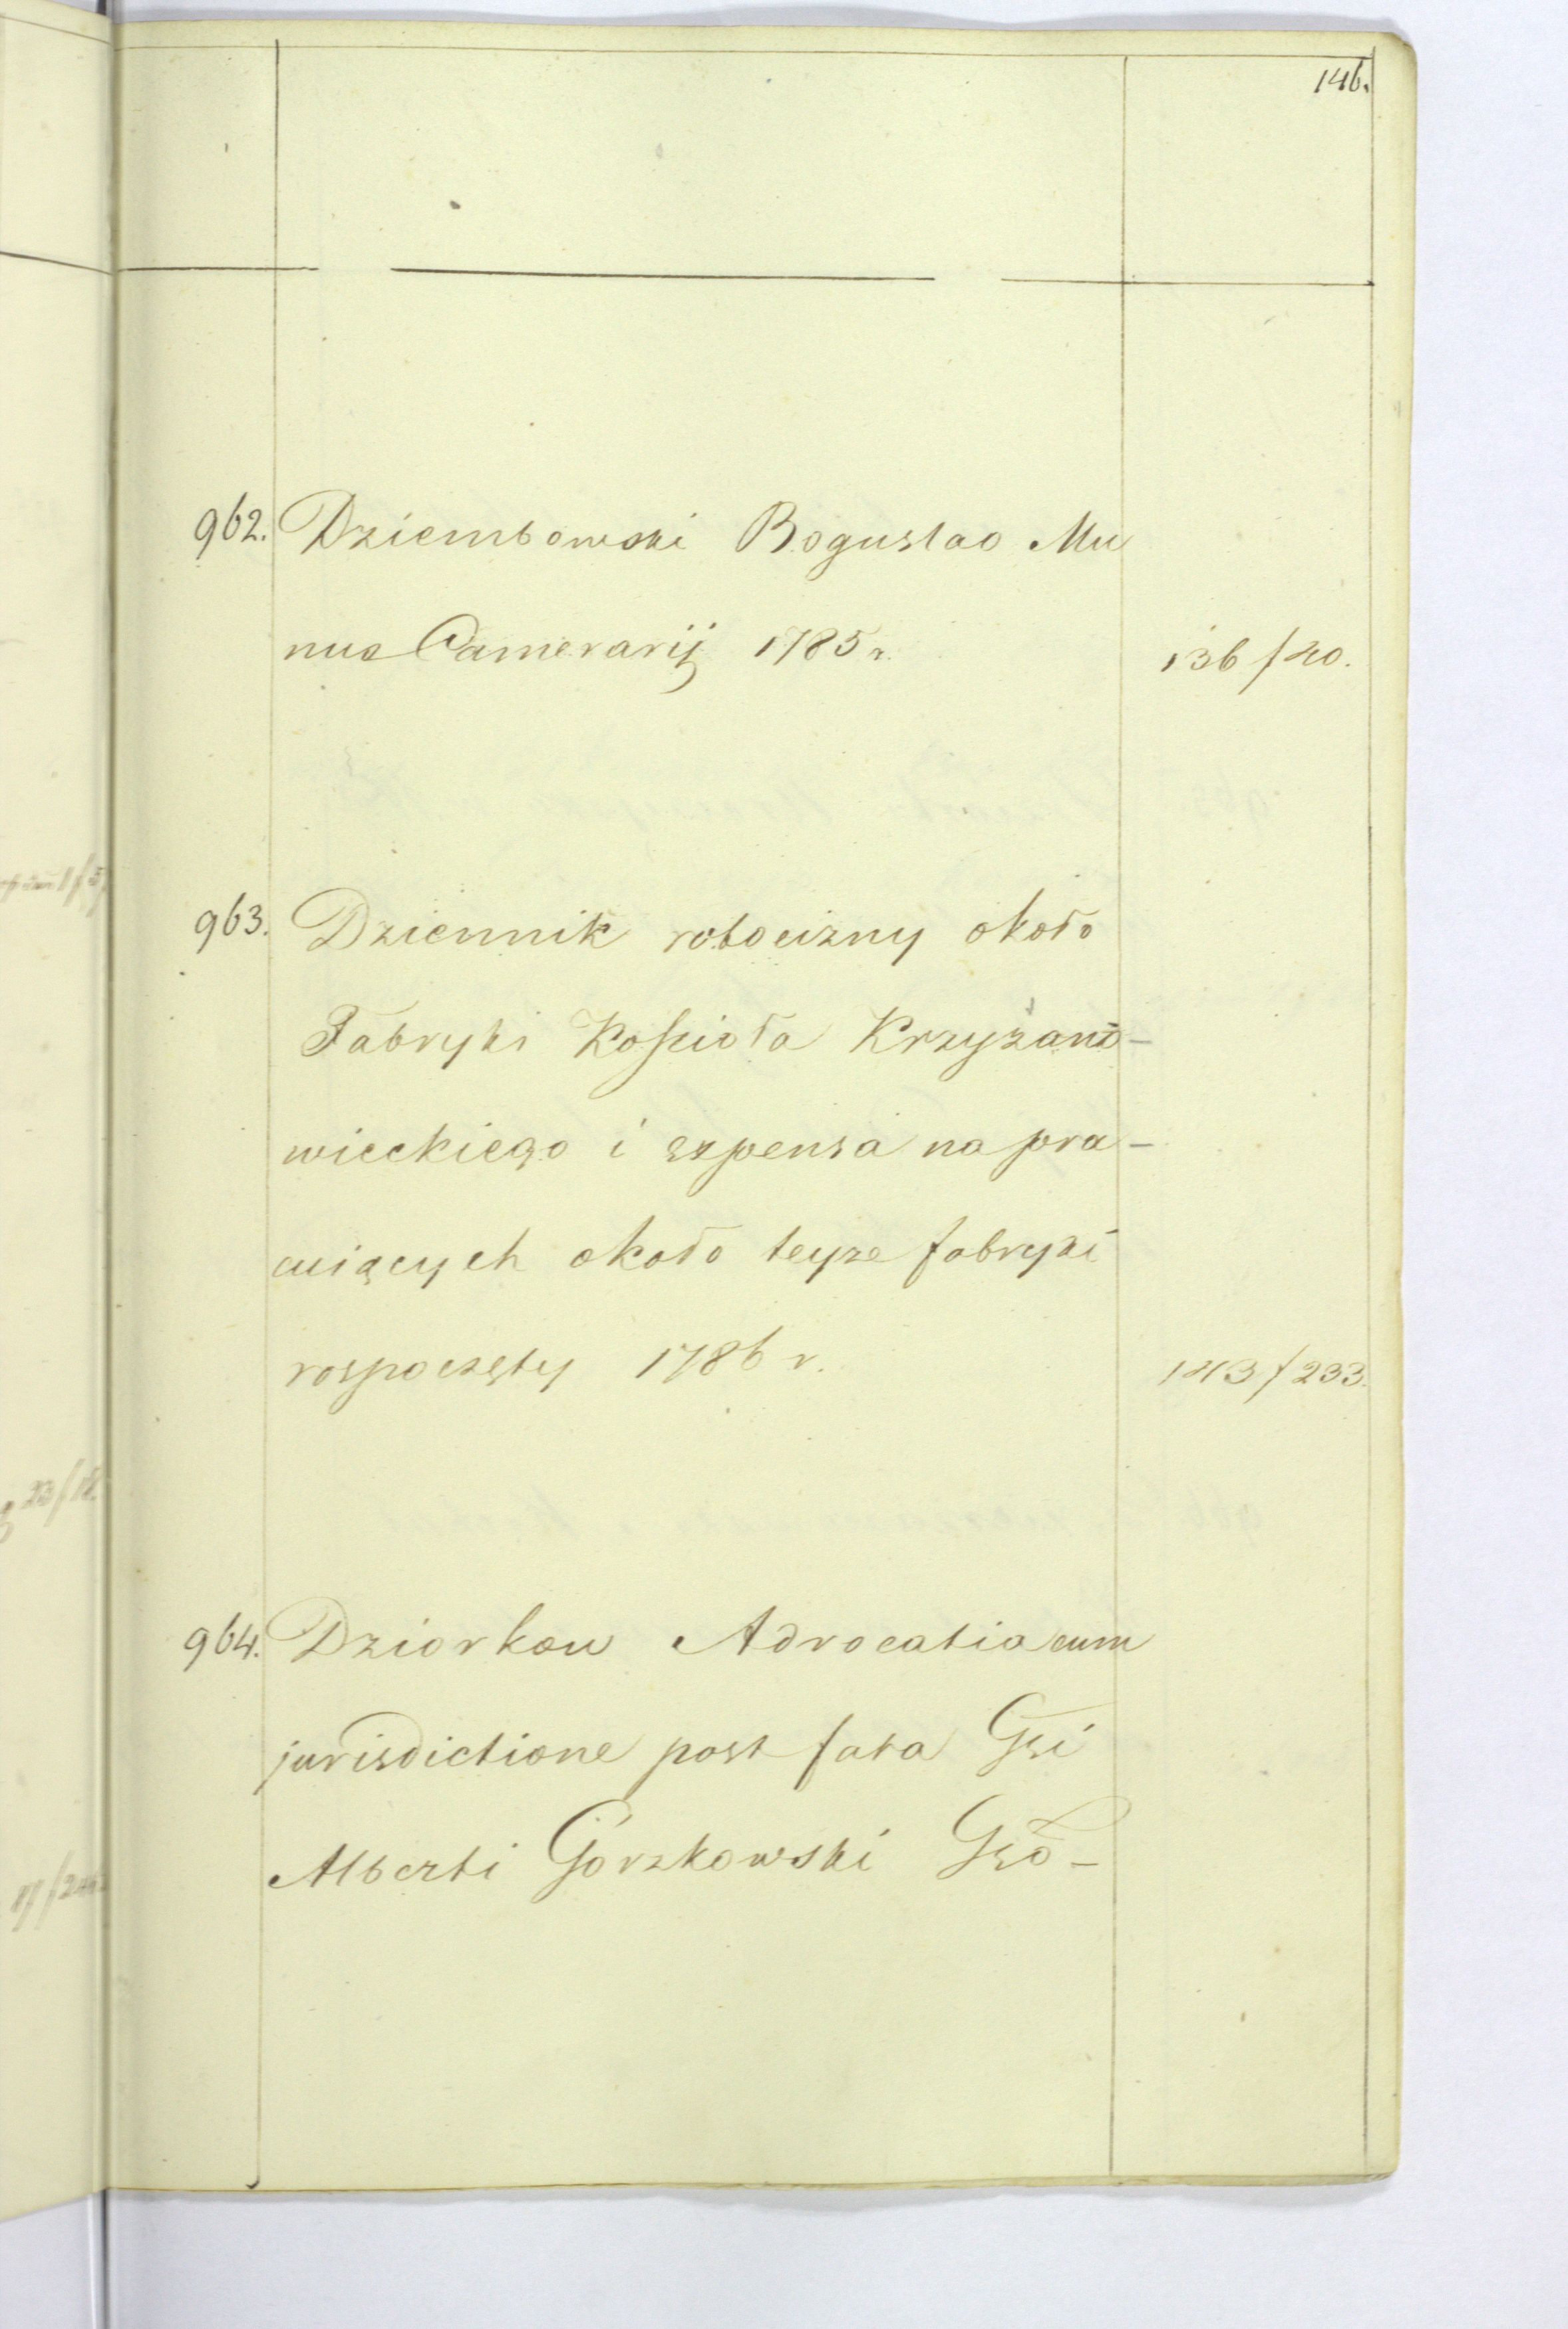 146.
962. Dziembowski Boguslao Mu
nus Camerarij 1785 r. 136/20.
963. Dziennik robocizny około
Fabryki Kościoła Krzyżano-
wieckiego i expensa na pra-
cuiących około teyże fabryki
rospoczęty 1786 r. 143/233.
964. Dziorkow Advocatia cum
jurisdictione post fata Gsi
Alberti Gorzkowski Gso-